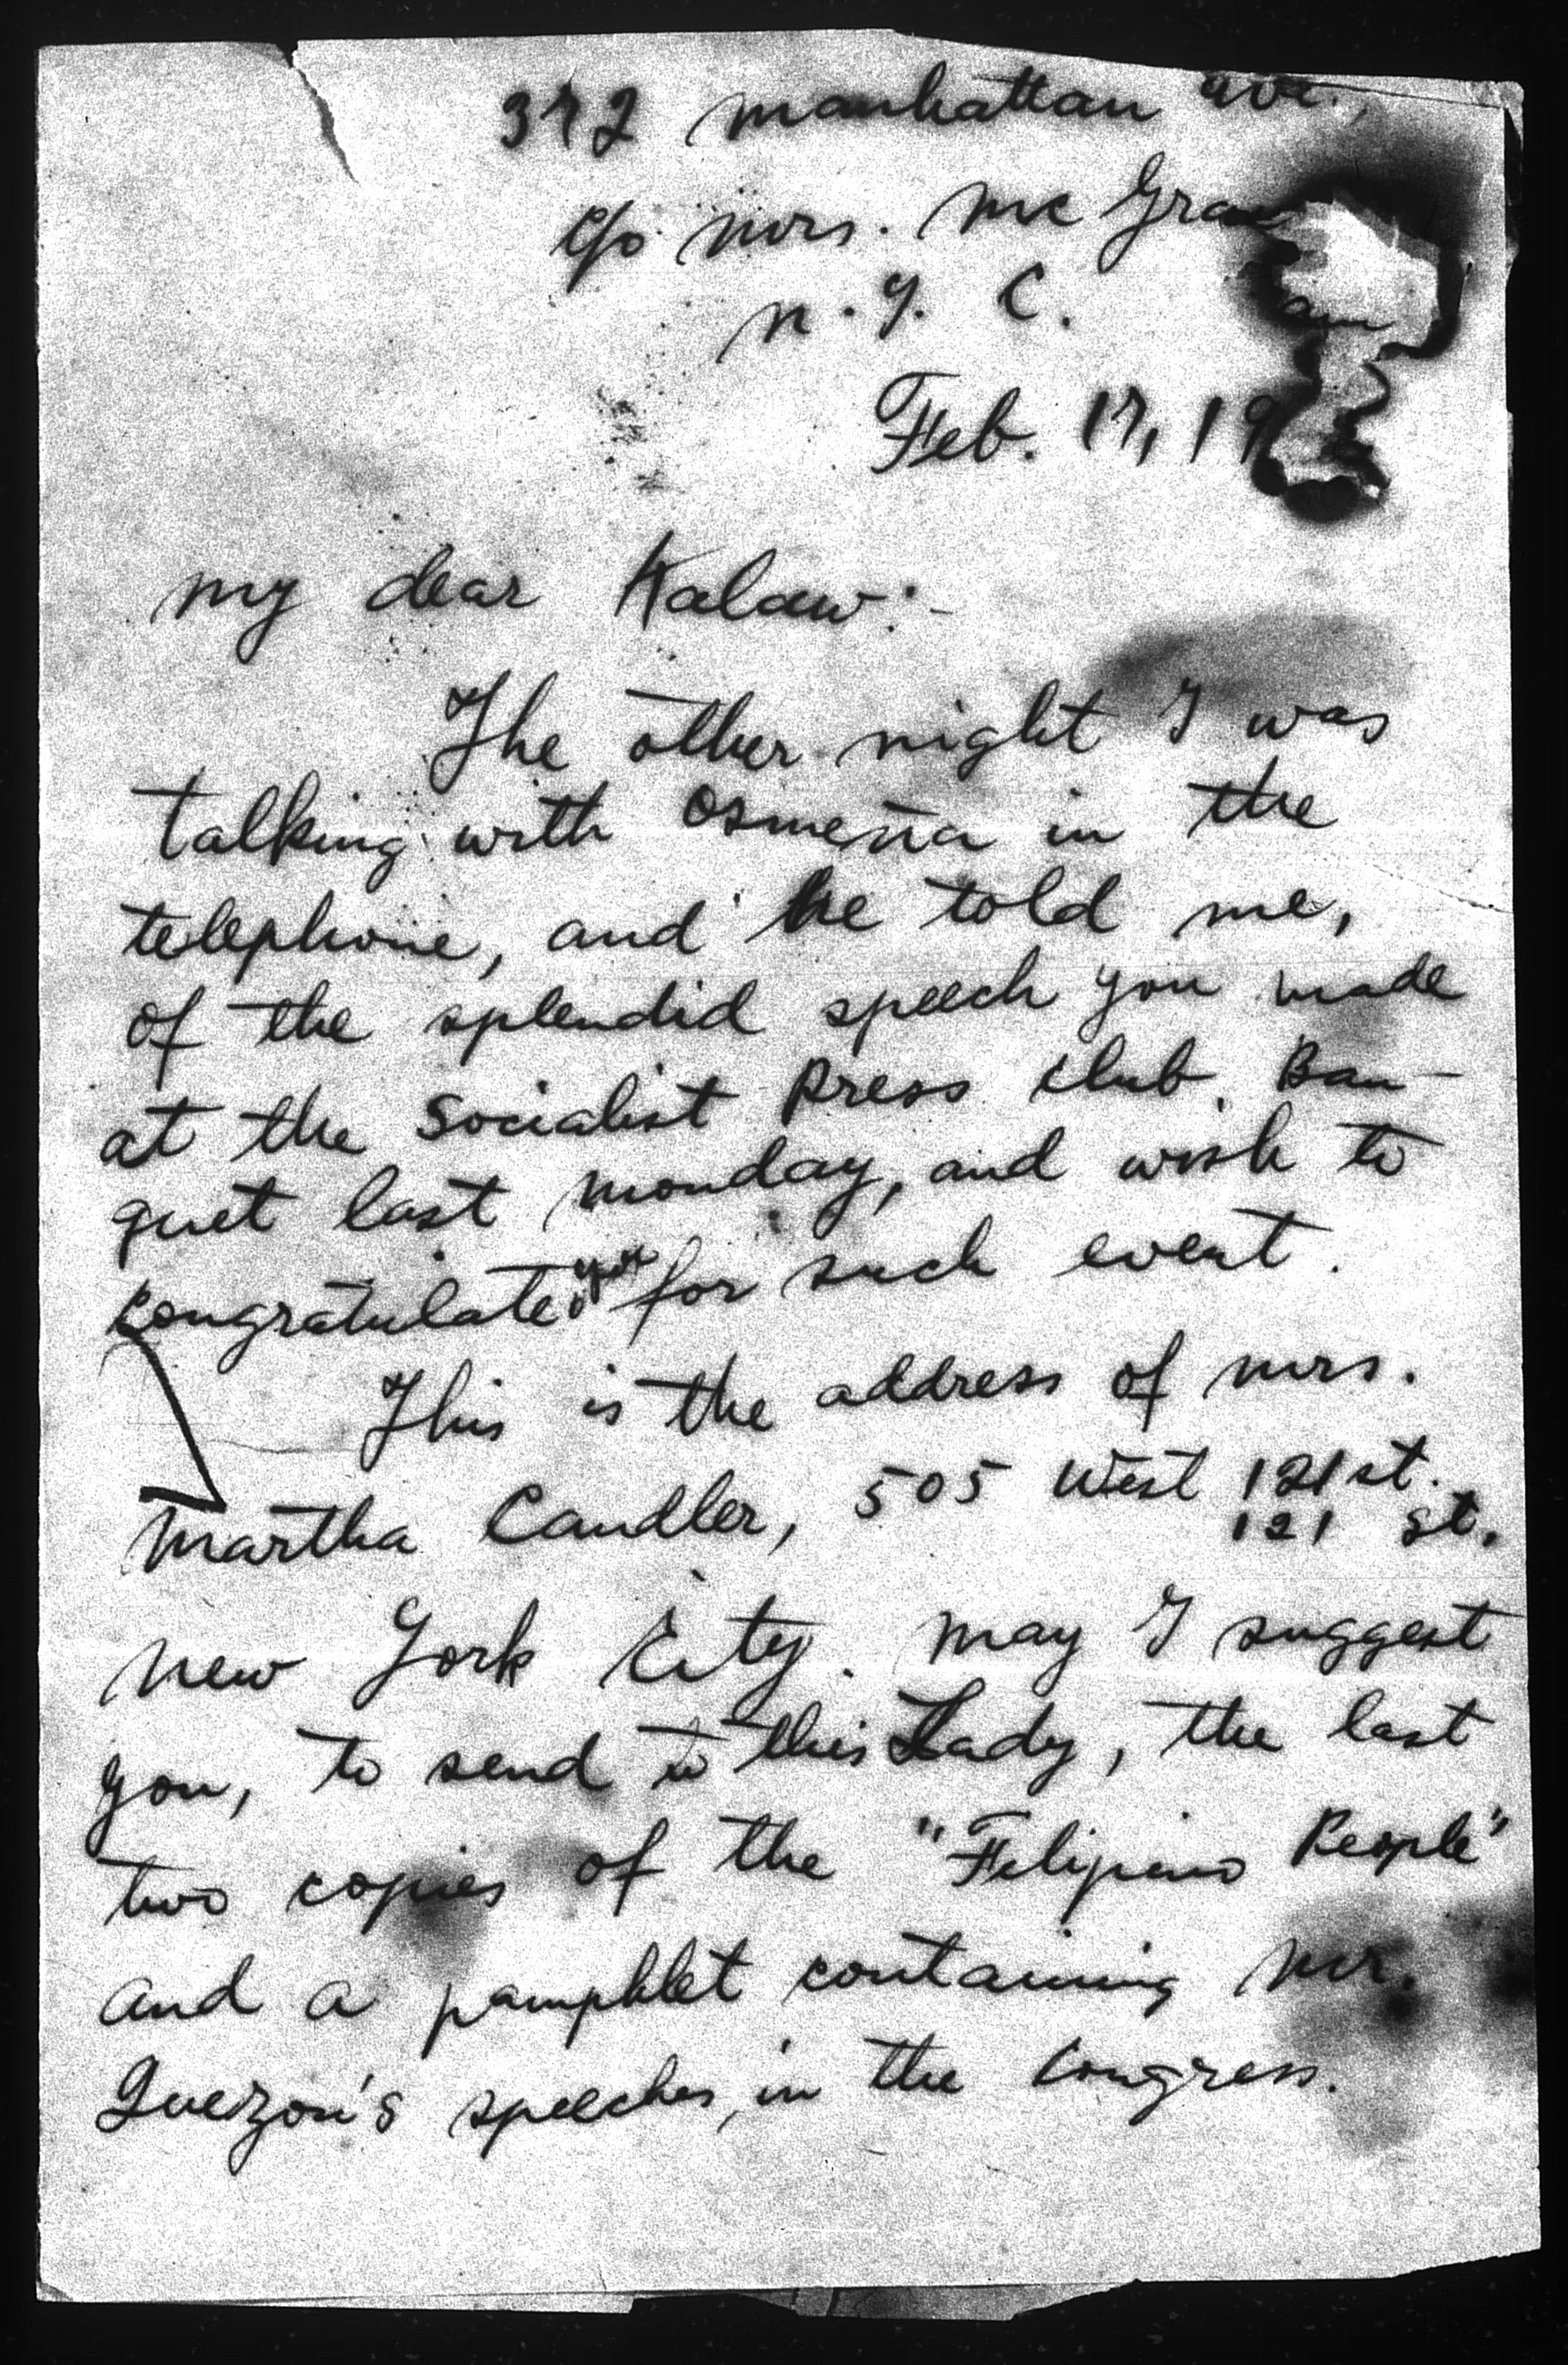 372 Manhattan ave.,
c/o Mrs. Mc
N. Y. C.
Feb. 17, 19
My dear Kalaw:-
The other night I was
talking with Osmeña in the
telephone, and he told me,
of the splendid speech you made
at the Socialist Press Club Ban-
quet last Monday, and wish to
congratulate you for such event.
This is the address of Mrs.
Martha Candler, 505 West 121st.
121 st.
New York City. May I suggest
you, to send to this Lady, the last
two copies of the "Filipino People"
and a pamphlet containing Mr.
Quezon's speeches, in the Congress.